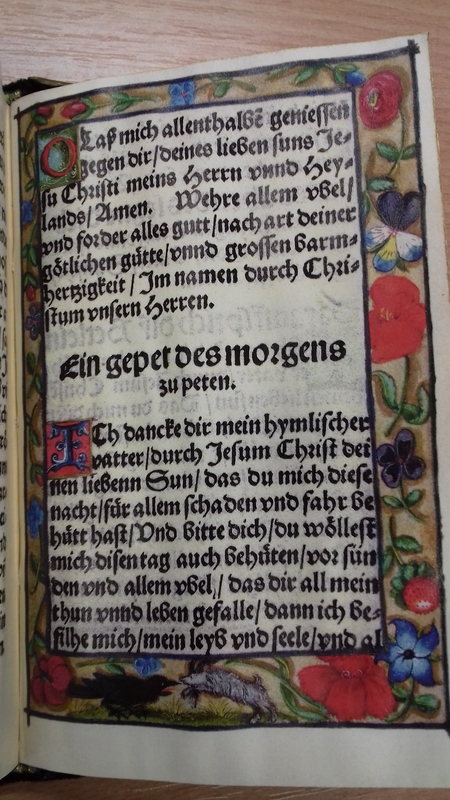 O Laß mich allenthalbē geniessen
gegen dir/deines lieben suns Je-
su Christi meins Herrn vnnd Hey-
lands/Amen. Wehre allem vbel/
vnd forder alles gutt/nach art deiner
götlichen gütte/vnnd grossen barm-
hertzigkeit/Im namen durch Chri-
stum vnsern Herren.
Ein gepet des morgens
zu peten.
ICh dancke dir mein hymlischer
vatter/durch Jesum Christ dei
nen liebenn Sun/das du mich diese
nacht/für allem schaden vnd fahr be
hütt hast/Vnd bitte dich/du wöllest
mich disen tag auch behüten/vor sün
den vnd allem vbel/das dir all mein
thun vnnd leben gefalle/dann ich be-
filhe mich/mein leyb vnd seele/vnd al